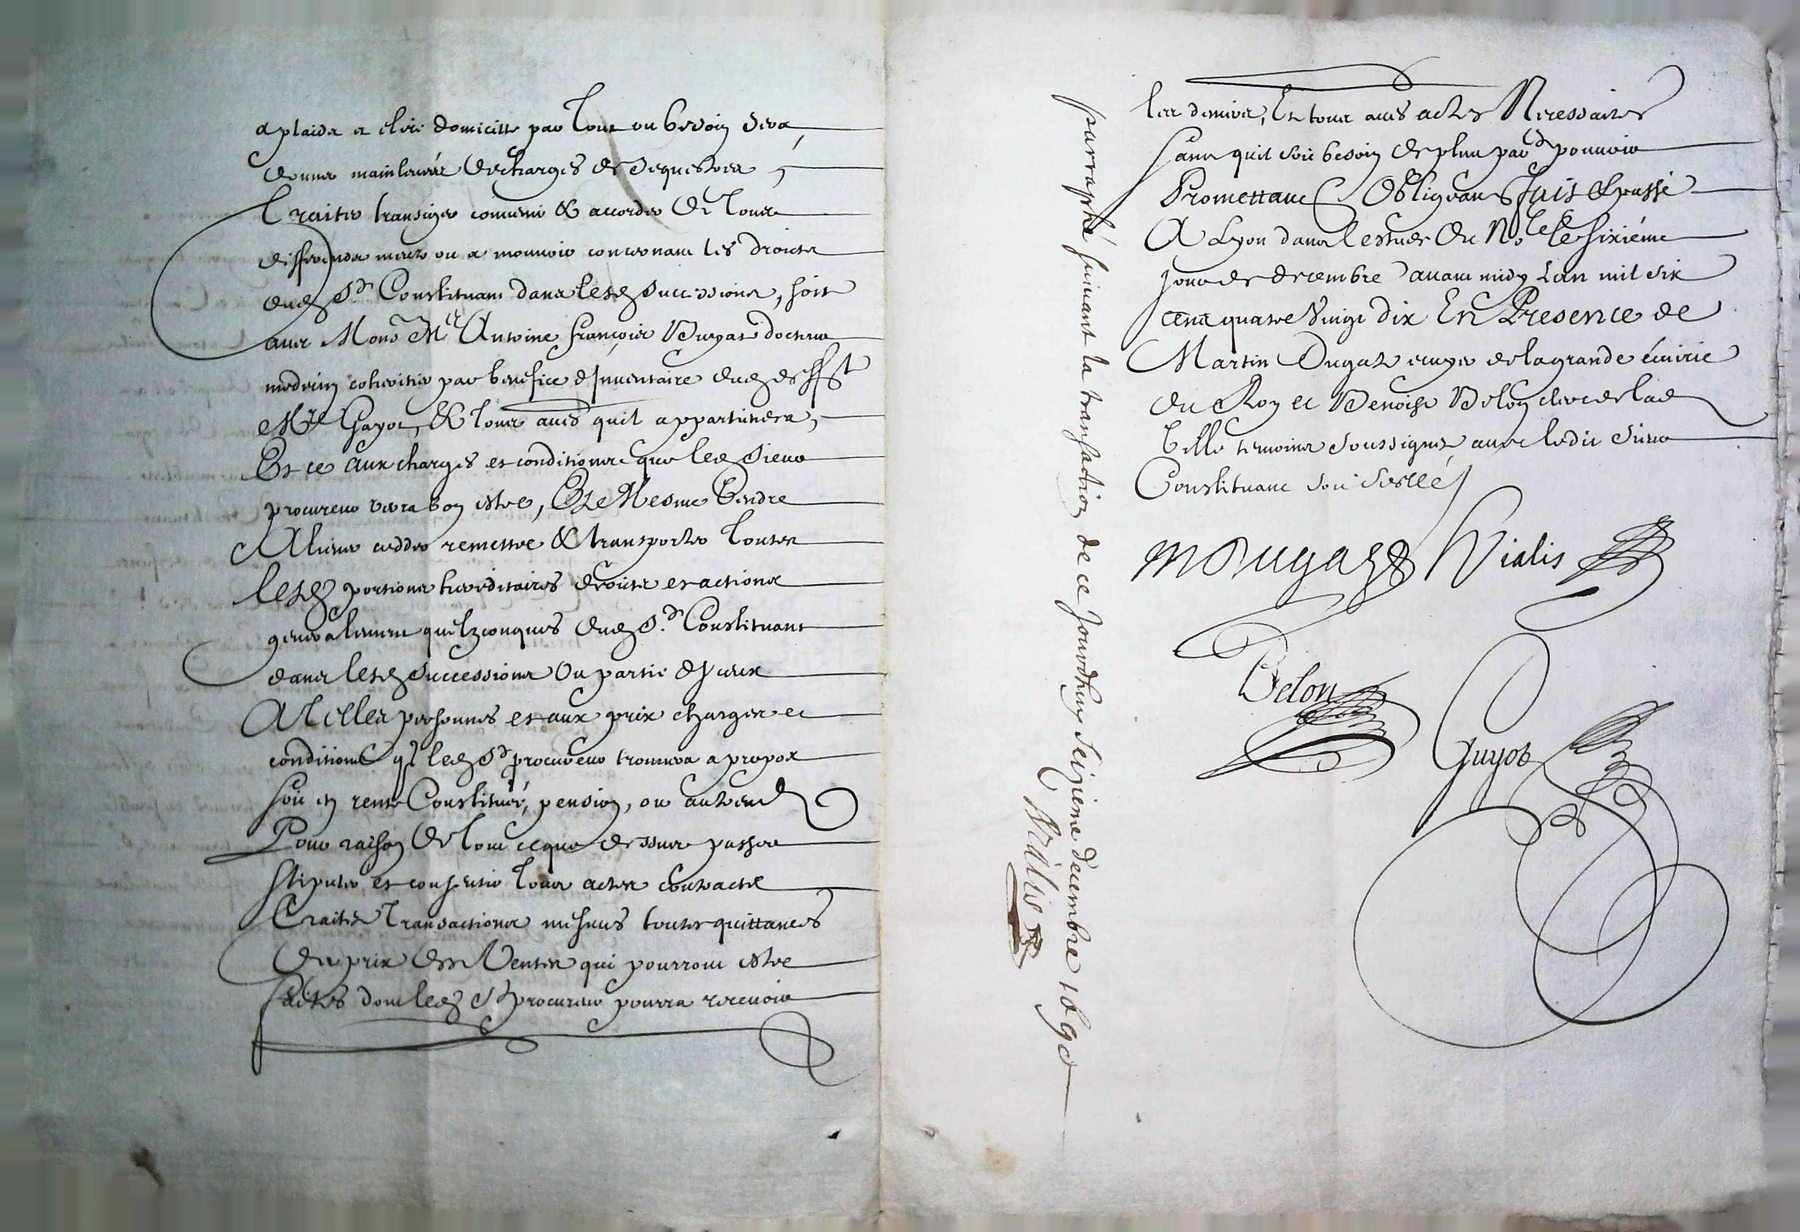 a plaider et eslire domicille par tout ou besoin sera,
donner mainlevée descharges de sequestres,
Traiter transiger convenir & accorder de tous
differends meus ou a mouvoir concernant les droicts
dud Sr Constituant dans lesd successions, soit
avec Mons Me Antoine françois docteur
medecin coheritier par benefice d'Inventaire dud deffst
Mre Gayot, & tous aues quil appartiendra,
Et ce aux charges et conditions que led Sieur
procureur verra bon estre, Et de Mesme Vendre
Aliener cedder remettre & transporter toutes
lesd portions hereditaires droicts et actions
generalement quelzconques dud Sr Constituant
dans lesd successions Ou partie d'jceux
A telles personnes et aux prix charges et
conditions q led Sr procureur trouvera a propos
soit en rente Constituée, pension, ou autremt
Pour raison de tout ceque dessus passer
stipuler et consentir tous actes contracts
Traités Transactions mesmes toutes quittances
Du prix des Ventes qui pourront estre
faictes dont led Sr procureur pourra recevoir
les deniers, Et tous aues actes Necessaires
sans quil soit besoin de plus par d pouvoir
Promettant Obligeant fait & passé
A Lyon dans lestude du Nore le sixiéme
jour de decembre avant midy Lan mil six
cent quatre Vingt dix En Presence de
Martin Dugat escuyer de la grande écurie
du Roy et Benoist Belon clerc de lad
Ville temoins soussignes avec ledit Sieur
Constituant soit scellé
M Dugat Vialis
Belon
Guyot
parraphé suivant la transation de ce jourdhuy seizieme decembre 1690
Vialis